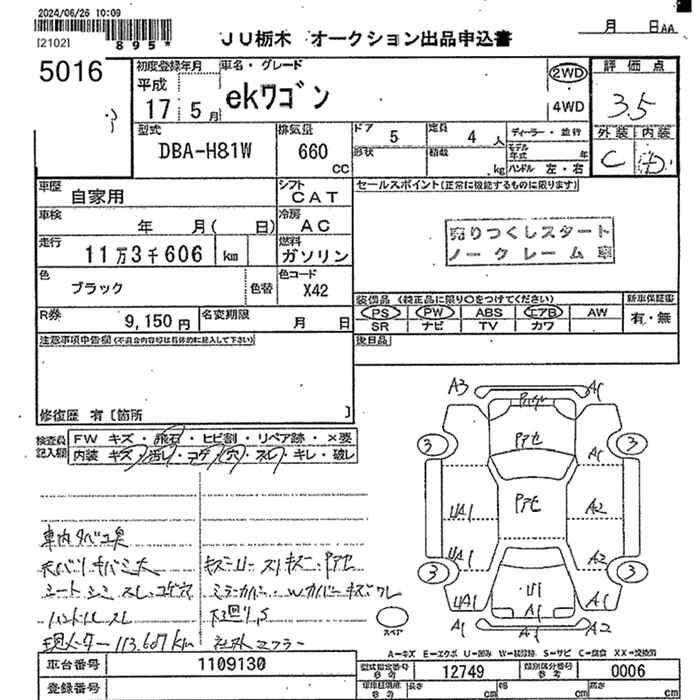 2024/06/26 10:09
[2102]
895*
JU栃木 オークション出品申込書
月 日AA
5016
初度登録年月
平成
17 5月
車名・グレード
ekワゴン
2WD
4WD
評価点
3.5
外装 内装
C
型式
DBA-H81W
排気量
660
CC
ドア 5
定員 4 人
形状
積載 kg
ディーラー・並行
モデル年式 年
ハンドル 左・右
車歴
自家用
シフト
CAT
車検
年 月( 日)
冷房
AC
走行
11万3千606 km
燃料
ガソリン
色
ブラック
色替
色コード
X42
R券
9,150円
名変期限
月 日
セールスポイント(正常に機能するものに限ります)
売りつくしスタート
ノークレーム車
装備品 (純正品に限り○をつけてください)
PS PW ABS エアB AW
SR ナビ TV カワ
新車保証書
有・無
後日品
注意事項申告欄(不具合内容等は具体的に記入して下さい)
修復歴 有〔箇所 〕
検査員記入欄
FW キズ・飛石・ヒビ割・リペア跡・×要
内装 キズ・汚レ・コゲ・穴・スレ・キレ・破レ
車内タバコ臭
シートシミ スレ コゲ穴
ハンドルスレ
現メーター 113.607km
社外マフラー
A3
A1
3
3
アセ
アセ
A1
UA1
A2
UA1
A2
3
3
UA1
U1
A1
A1
A1
A2
スペア
A-キズ E-エクボ U-凹み W-補修跡 S-サビ C-腐食 XX-交換済
車台番号
1109130
登録番号
型式指定番号
参考
12749
類別区分番号
参考
0006
長さ cm
幅 cm
高さ cm